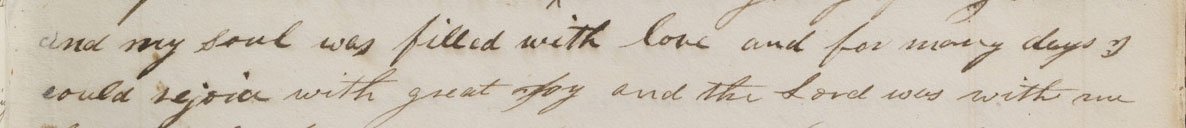 and my soul was filled with love and for many days I
could rejoice with great Joy and the Lord was with me